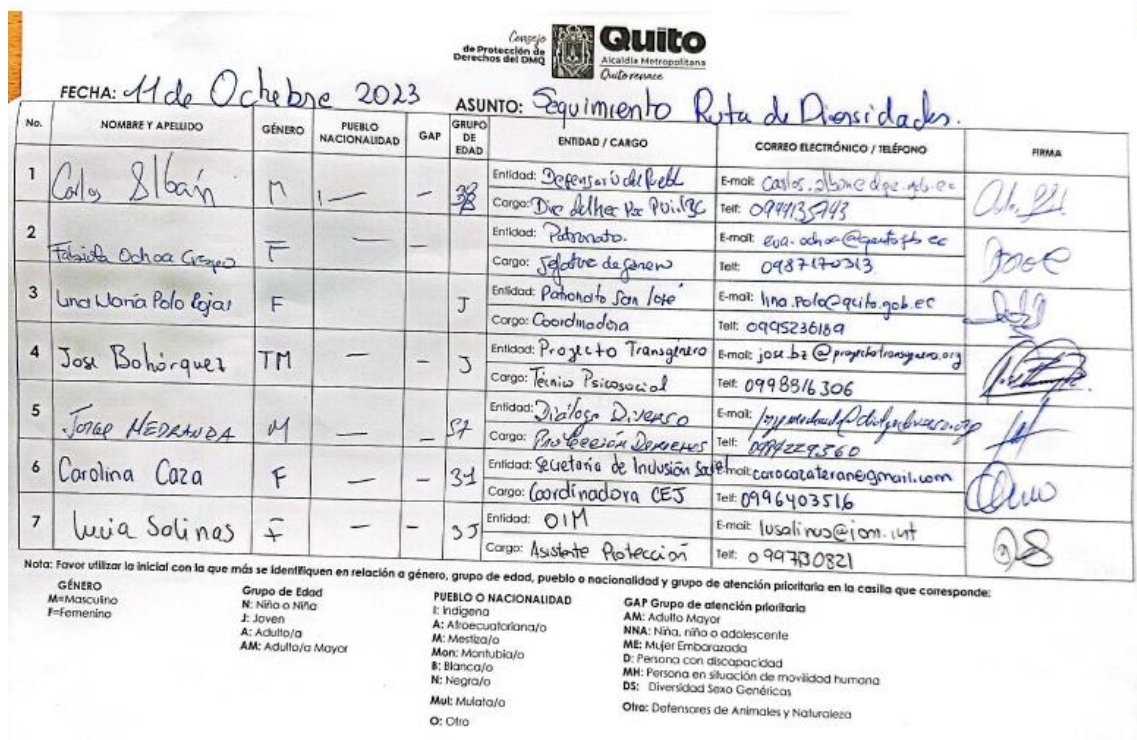 Consejo
de Protección de
Derechos del DMQ
Quito
Alcaldía Metropolitana
Quito renace
FECHA: 11 de Octubre 2023 ASUNTO: Seguimiento Ruta de Diversidades.
No. NOMBRE Y APELLIDO GÉNERO PUEBLO NACIONALIDAD GAP GRUPO DE EDAD ENTIDAD / CARGO CORREO ELECTRÓNICO / TELÉFONO FIRMA
1 Carlos Albán M — — 38 Entidad: Defensoría del Puebl E-mail:
Cargo: Telf:
2 Fabiola Ochoa F — — Entidad: Patronato. E-mail:
Cargo: de género Telf: 0987170313
3 Lina María Polo Rojas F J Entidad: Patronato San José E-mail: lina.polo@quito.gob.ec
Cargo: Coordinadora Telf: 0995236189
4 Jose Bohórquez TM — J Entidad: Proyecto Transgénero E-mail: jose.bz@proyectotransgenero.org
Cargo: Técnico Psicosocial Telf: 0998816306
5 Jorge MEDRANDA M — — 57 Entidad: Diálogo Diverso E-mail:
Cargo: Protección Derechos Telf: 0984229560
6 Carolina Caza F — — 31 Entidad: Secretaría de Inclusión Social E-mail: carocazateran@gmail.com
Cargo: Coordinadora CEJ Telf: 0996403516
7 Lucia Salinas F — — 35 Entidad: OIM E-mail: lusalinas@iom.int
Cargo: Asistente Protección Telf: 099730821
Nota: Favor utilizar la inicial con la que más se identifiquen en relación a género, grupo de edad, pueblo o nacionalidad y grupo de atención prioritaria en la casilla que corresponde:
GÉNERO
M=Masculino
F=Femenino
Grupo de Edad
N: Niño o Niña
J: Joven
A: Adulto/a
AM: Adulto/a Mayor
PUEBLO O NACIONALIDAD
I: Indígena
A: Afroecuatoriana/o
M: Mestiza/o
Mon: Montubia/o
B: Blanca/o
N: Negra/o
Mul: Mulata/o
O: Otro
GAP Grupo de atención prioritaria
AM: Adulto Mayor
NNA: Niña, niño o adolescente
ME: Mujer Embarazada
D: Persona con discapacidad
MH: Persona en situación de movilidad humana
DS: Diversidad Sexo Genéricas
Otro: Defensores de Animales y Naturaleza